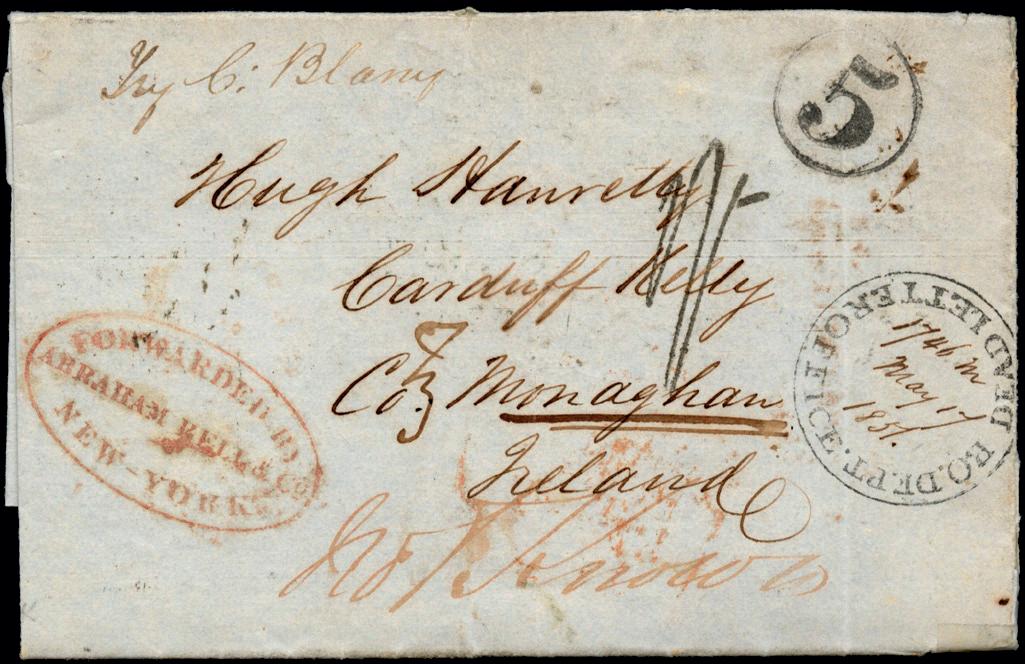 Try C: Blany
5
Hugh Hanretty
Carduff Kelly
Co. Monaghan
Ireland
1/-
FORWARDED BY
ABRAHAM BELL & CO
NEW-YORK.
P.O. DEPT. DEAD LETTER OFFICE
1746 m
May 17
1851.
Not Known